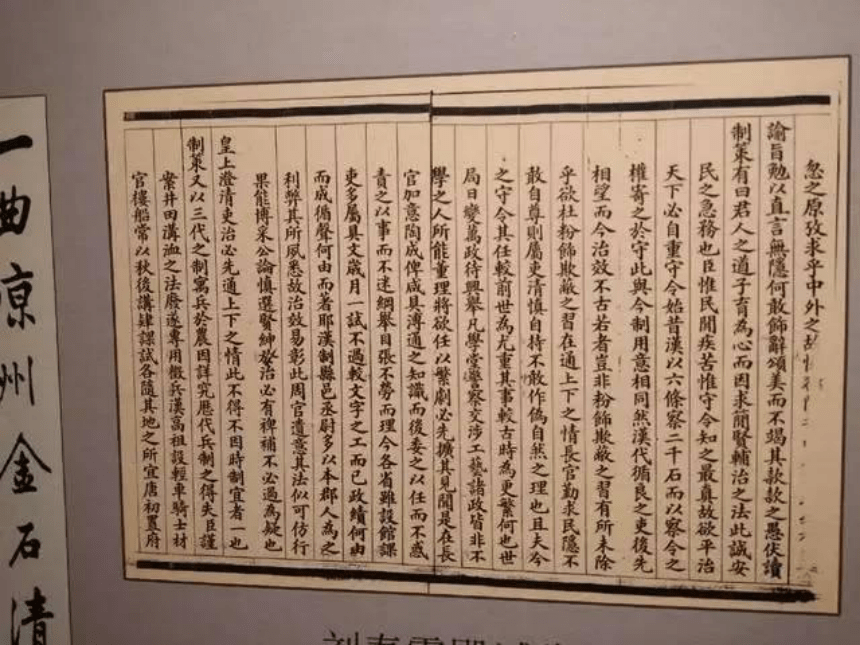 忽之原攷求乎中外之故
諭旨勉以直言無隱何敢飾辭頌美而不竭其款款之愚伏讀
制策有曰君人之道子育為心而因求簡賢輔治之法此誠安
民之急務也臣惟民間疾苦惟守令知之最真故欲平治
天下必自重守令始昔漢以六條察二千石而以察令之
權寄之於守此與今制用意相同然漢代循良之吏後先
相望而今治效不古若者豈非粉飾欺蔽之習有所未除
乎欲杜粉飾欺蔽之習在通上下之情長官勤求民隱不
敢自尊則屬吏清慎自持不敢作偽自然之理也且夫今
之守令其任較前世為尤重其事較古時為更繁何也世
局日變萬政待興舉凡學堂警察交涉工藝諸政皆非不
學之人所能董理將欲任以繁劇必先擴其見聞是在長
官加意陶成俾咸具溥通之知識而後委之以任而不惑
責之以事而不迷綱舉目張不勞而理今各省雖設館課
吏多屬具文歲月一試不過較文字之工而已政績何由
而成循聲何由而著耶漢制縣邑丞尉多以本郡人為之
利弊其所夙悉故治效易彰此周官遺意其法似可仿行
果能博采公論慎選賢紳於治必有裨補不必過為疑也
皇上澄清吏治必先通上下之情此不得不因時制宜者一也
制策又以三代之制寓兵於農因詳究歷代兵制之得失臣謹
案井田溝洫之法廢遂專用徵兵漢高祖設輕車騎士材
官樓船常以秋後講肄課試各隨其地之所宜唐初置府
一曲凉州金石清